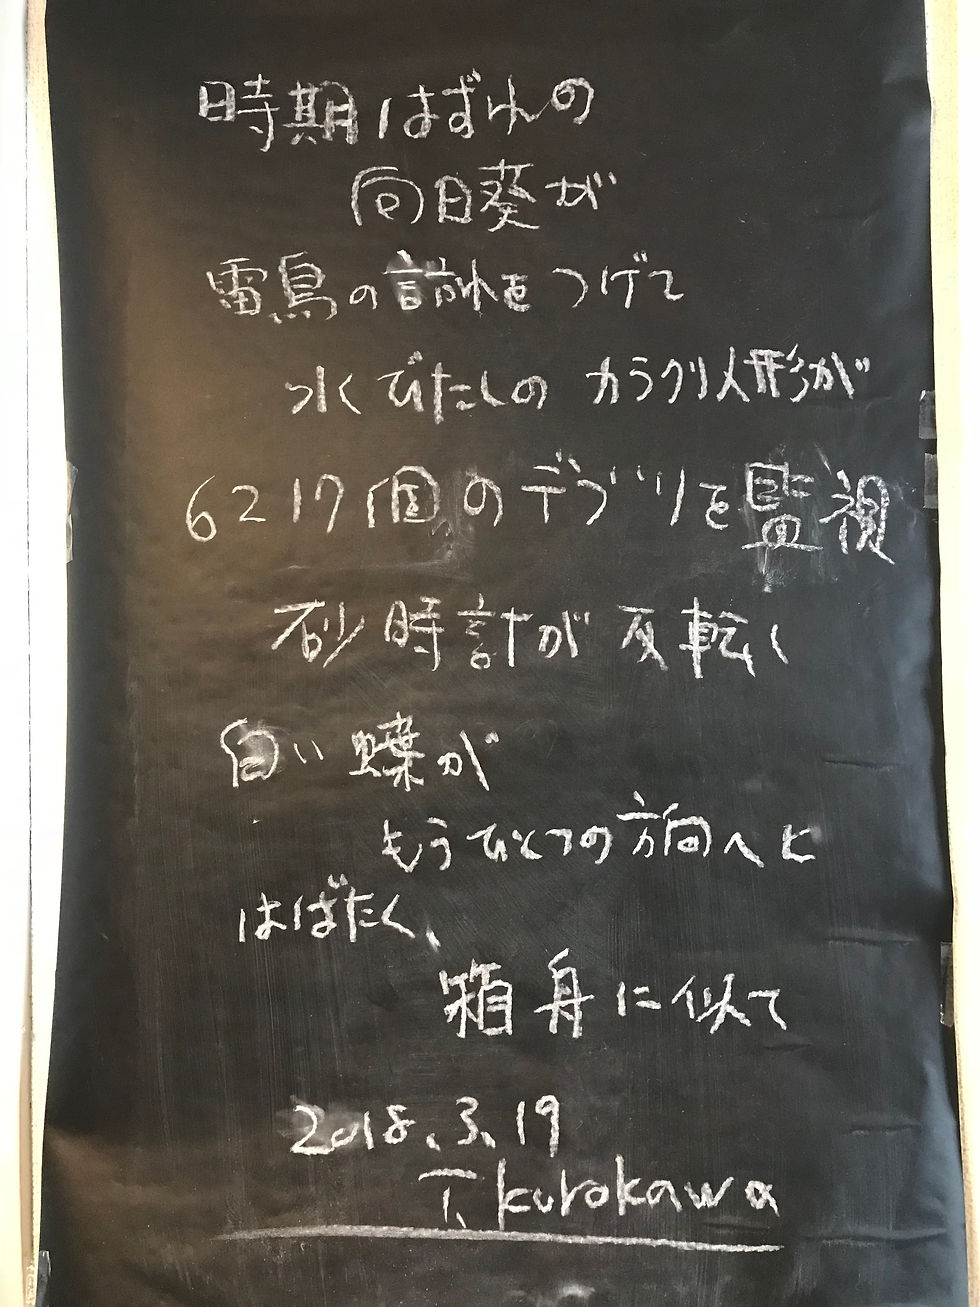 時期はずれの
向日葵が
雷鳥の訪れをつげて
水びたしのカラクリ人形が
6217個のデブリを監視
砂時計が反転
白い蝶が
もうひとつの方向へと
はばたく、
箱舟に似て
2018.3.19
T. kurokawa